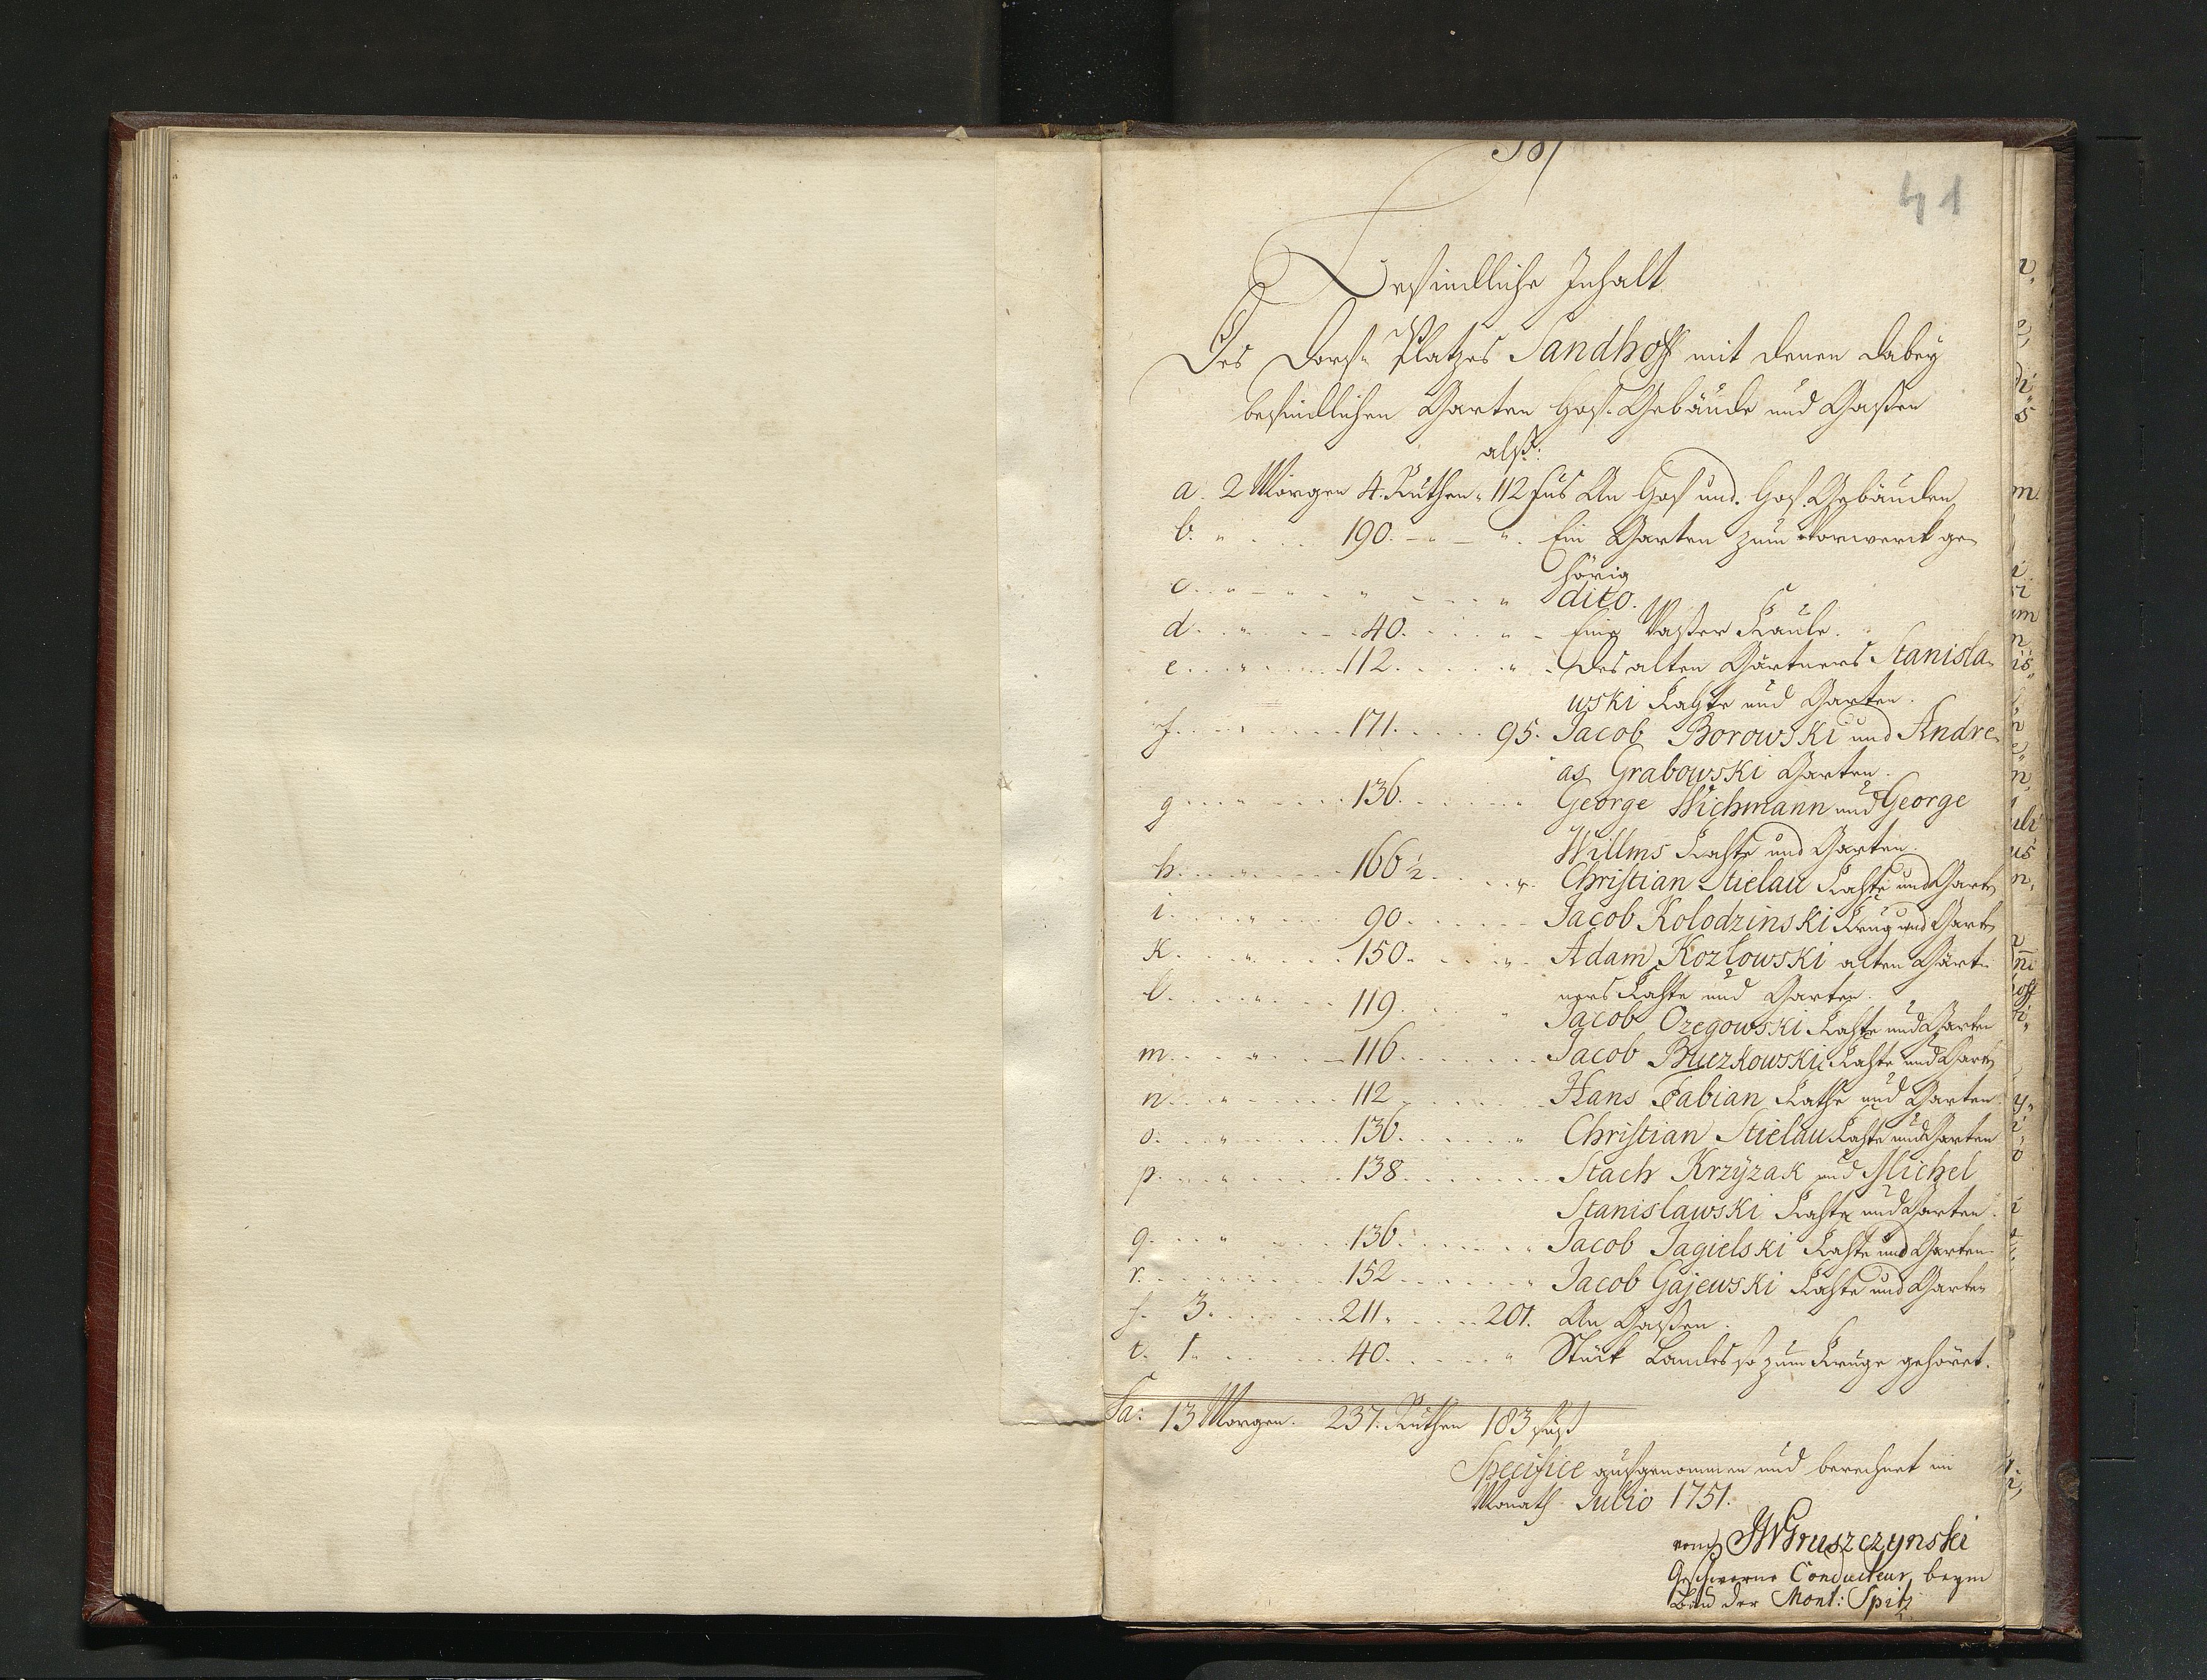 41
Befindliche Inhalt
Des Dorf- Platzes Sandhoff mit denen dabey
befindlichen Garten Hof-Gebäude und Gaßen
alß:
a. 2 Morgen 4. Ruthen. 112 fus An Hof und. Hof. Gebäuden
b. " 190. " Ein Garten zum Vorwerck ge-
hörig
c. " " " dito.
d. " 40. " Eine Waßer Kaule.
e. " 112. " Des alten Gärtners Stanisla-
wski Kahte und Garten.
f. 171. 95. Jacob Borowski und Andre-
as Grabowski Garten.
g. " 136. " George Wichmann und George
Willms Kahte und Garten.
h. " 166 1/2. " Christian Stielau Kahte und Garten
i. " 90. Jacob Kolodzinski Krug und Garten
k. " 150. " Adam Kozlowski alten Gärt-
ners Kahte und Garten.
l. " 119. " Jacob Ozegowski Kahte und Garten
m. " 116. Jacob Buczkowski Kahte und Garten
n. " 112 Hans Fabian Kathe und Garten
o. " 136. " Christian Stielau Kahte und Garten
p. " 138 Stach Krzÿzak und Michel
Stanislawski Kahte und Garten.
q. " 136. " Jacob Jagielski Kahte und Garten
r. " 152. " Jacob Gajewski Kahte und Garten
s. 3. 211. 201. An Gaßen.
t. 1. 40. " Stück Landes so zum Kruge gehöret.
Sa: 13 Morgen. 237. Ruthen 183 fuß
Specifice aufgenommen und berechnet im
Monath Julio 1751.
von JWGruszczynski
Geschworne Conducteur beym
Bau der Mont: Spitz